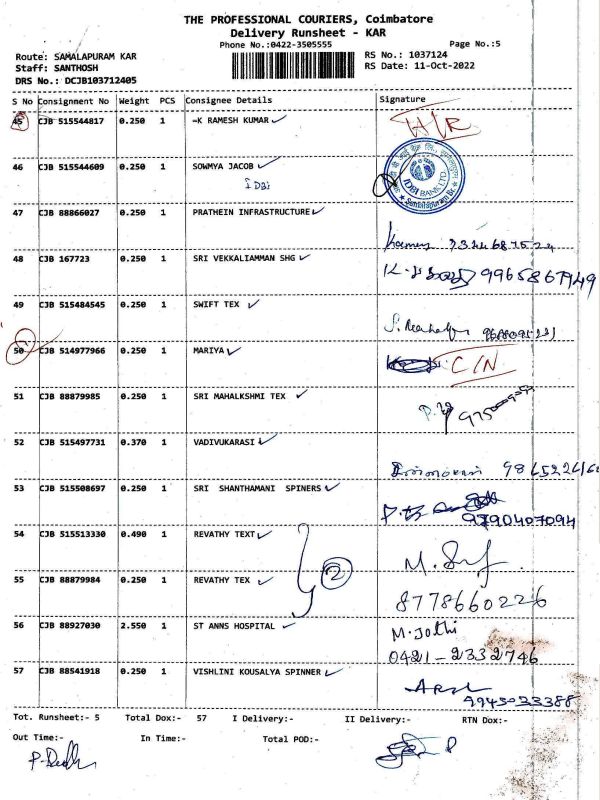 THE PROFESSIONAL COURIERS, Coimbatore
Delivery Runsheet - KAR
Phone No.:0422-3505555
Page No.:5
Route: SAMALAPURAM KAR
RS No.: 1037124
Staff: SANTHOSH
RS Date: 11-Oct-2022
DRS No.: DCJB103712405
S No Consignment No Weight PCS Consignee Details Signature
45 CJB 515544817 0.250 1 -K RAMESH KUMAR
46 CJB 515544609 0.250 1 SOWMYA JACOB
IDBI
IDBI BANK LTD.
47 CJB 88866027 0.250 1 PRATHEIN INFRASTRUCTURE
48 CJB 167723 0.250 1 SRI VEKKALIAMMAN SHG
9965867949
49 CJB 515484545 0.250 1 SWIFT TEX
50 CJB 514977966 0.250 1 MARIYA C/N
51 CJB 88879985 0.250 1 SRI MAHALKSHMI TEX
52 CJB 515497731 0.370 1 VADIVUKARASI
53 CJB 515508697 0.250 1 SRI SHANTHAMANI SPINERS
9790407094
54 CJB 515513330 0.490 1 REVATHY TEXT
2
55 CJB 88879984 0.250 1 REVATHY TEX
8778660226
56 CJB 88927030 2.550 1 ST ANNS HOSPITAL M. Jothi
0421-2332746
57 CJB 88541918 0.250 1 VISHLINI KOUSALYA SPINNER
9945033388
Tot. Runsheet:- 5 Total Dox:- 57 I Delivery:- II Delivery:- RTN Dox:-
Out Time:- In Time:- Total POD:-